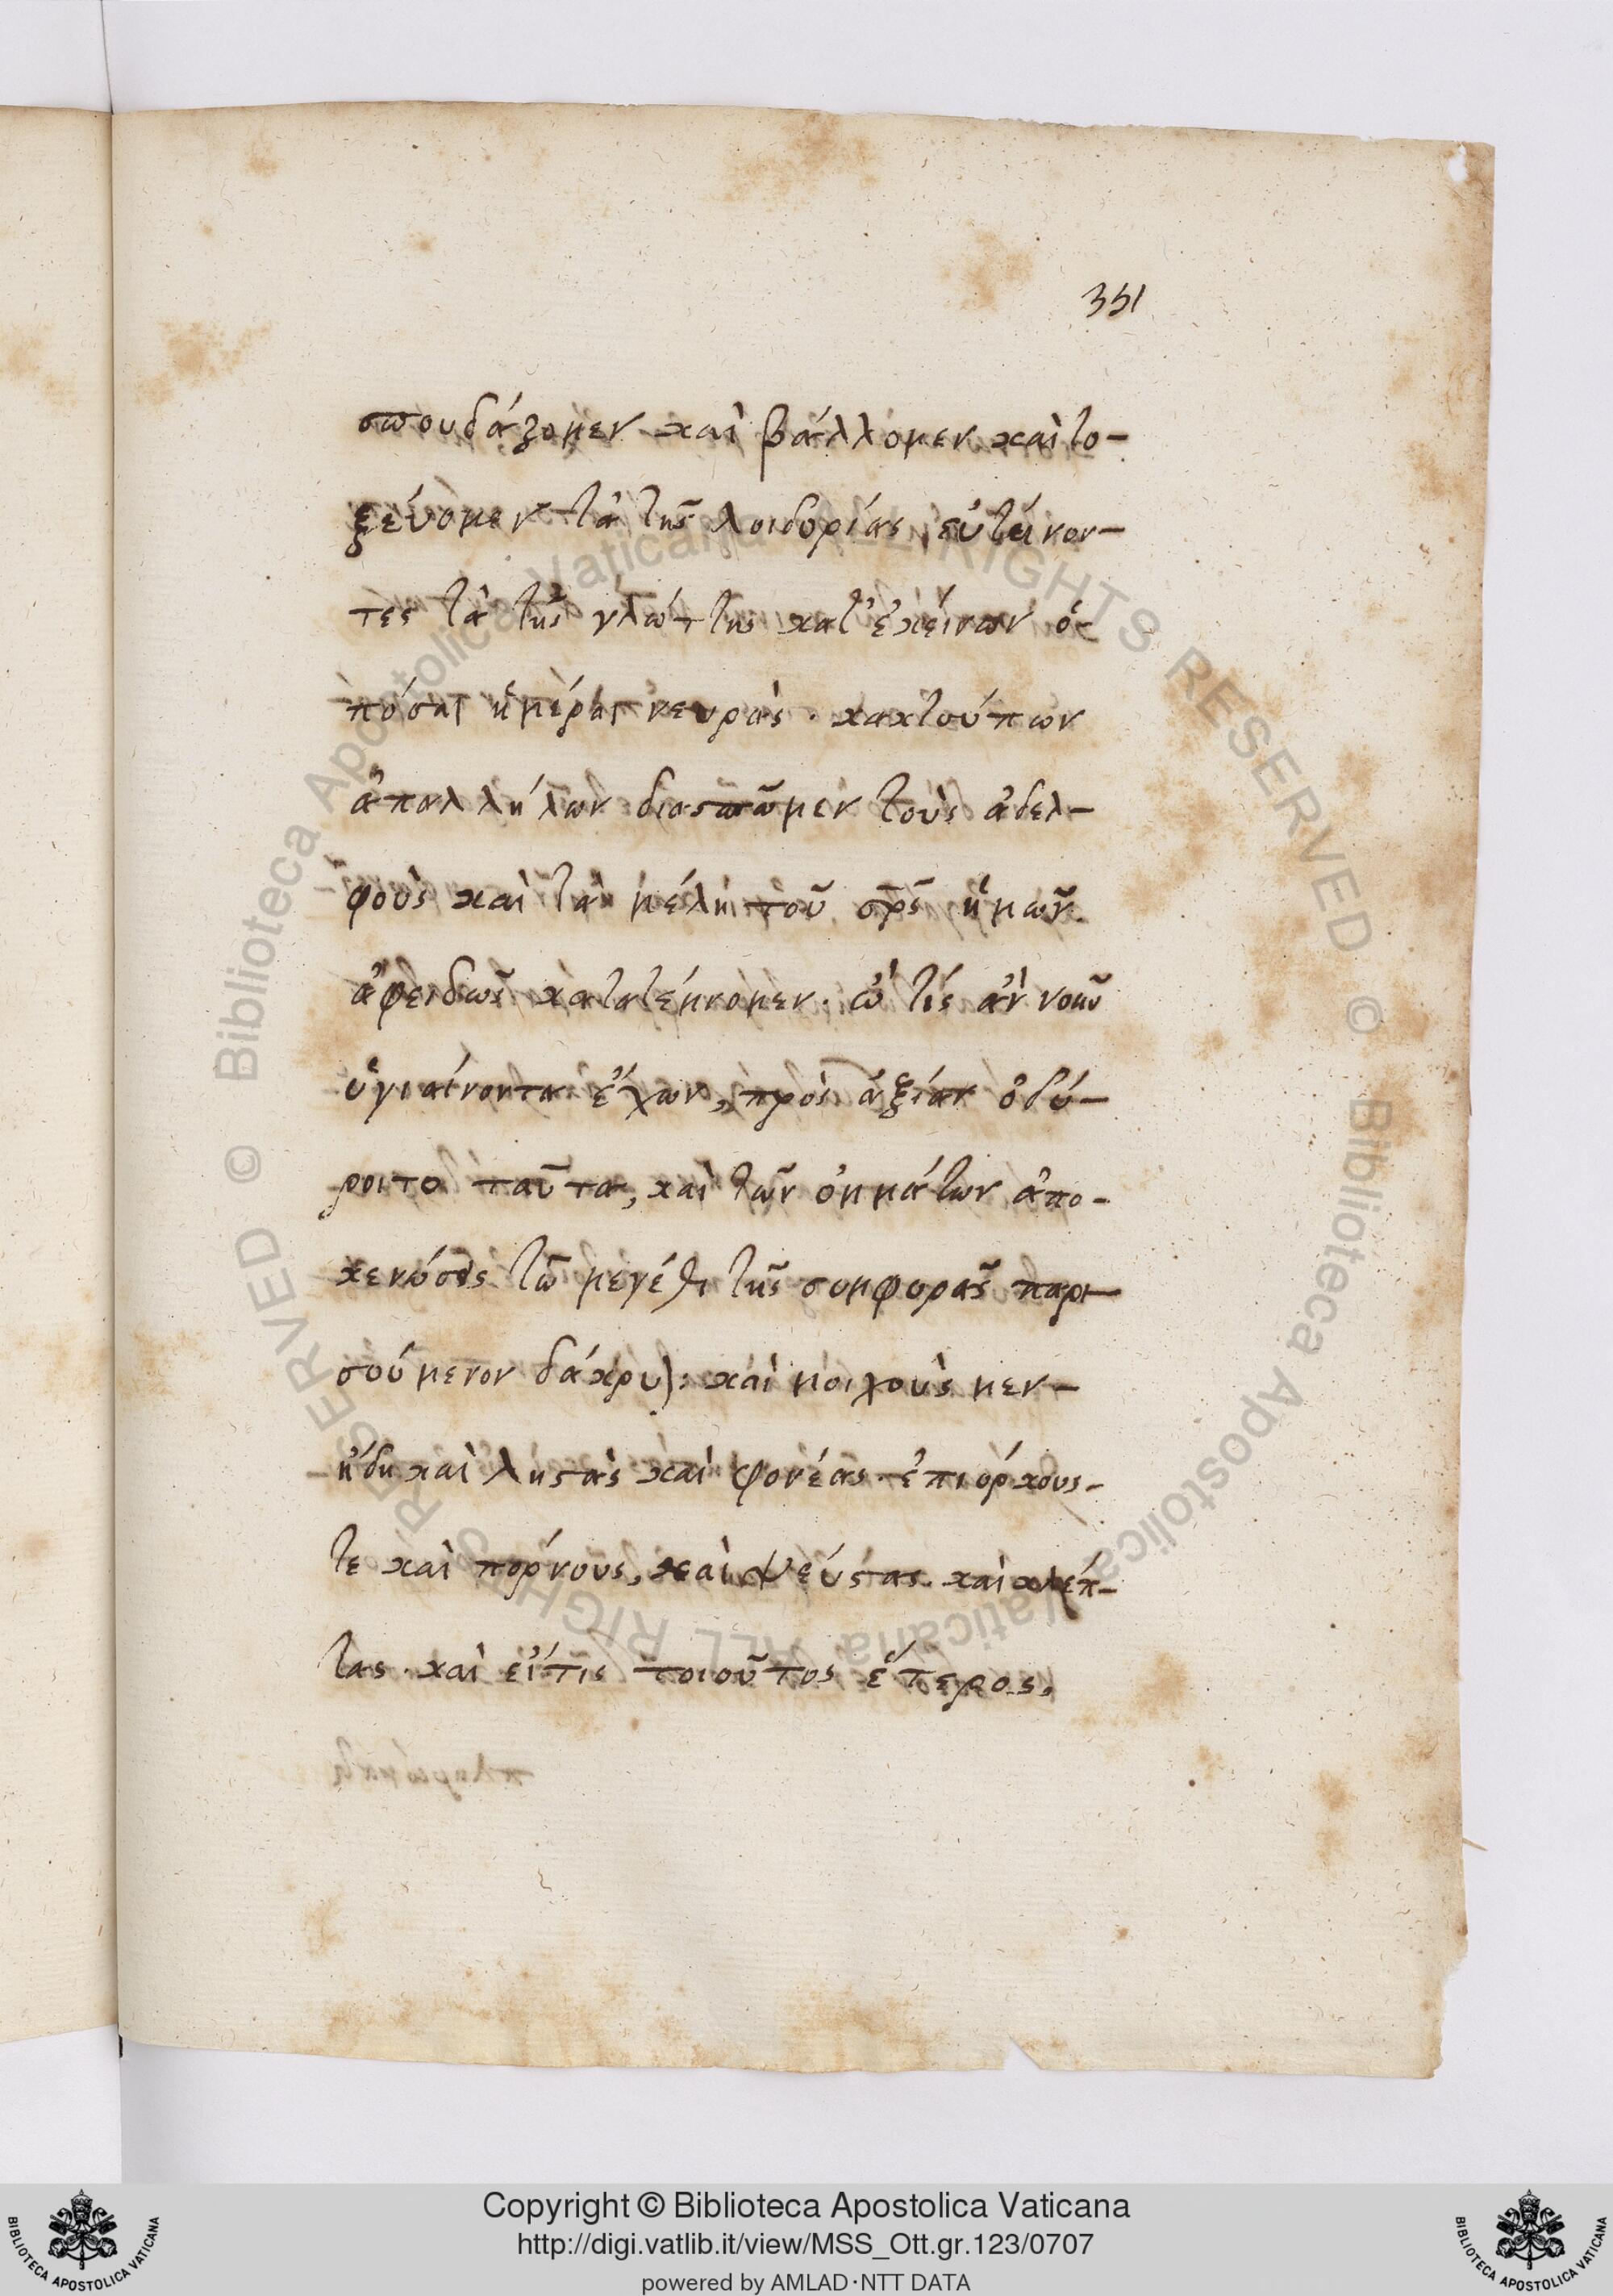 351
σπουδάζομεν καὶ βάλλομεν καὶ το-
ξεύομεν τὰ τῆς λοιδορίας, εὐτείνον-
τες τὰ τῆς γλώττης κατ' ἐκείνων ὁσ
πόσαι ἡμέραι νευρὰς. κακτούπων
ἀπαλλήλων διασπῶμεν τοὺς ἀδελ-
φοὺς καὶ τὰ μέλη τοῦ σρς ἡμῶν
ἀφειδῶς κατατέμνομεν. ὦ τίς ἂν νοῦν
ὑγιαίνοντα ἔχων, πρὸς ἀξίαν ὀδύ-
ροιτο ταῦτα, καὶ τῶν ὀμμάτων ἀπο-
κενώσει τῶ μεγέθει τῆς συμφορᾶς παρι-
σούμενον δάκρυ; καὶ μοιχοὺς μεν-
ἤδη καὶ ληστὰς καὶ φονέας ἐπιόρκους-
τε καὶ πόρνους, καὶ ψεύστας. καὶ κλέπ-
τας. καὶ εἴτις τοιοῦτος ἕτερος,
Copyright © Biblioteca Apostolica Vaticana
http://digi.vatlib.it/view/MSS_Ott.gr.123/0707
powered by AMLAD·NTT DATA
BIBLIOTECA APOSTOLICA VATICANA
BIBLIOTECA APOSTOLICA VATICANA
© Biblioteca Apostolica Vaticana ALL RIGHTS RESERVED
© Biblioteca Apostolica Vaticana ALL RIGHTS RESERVED